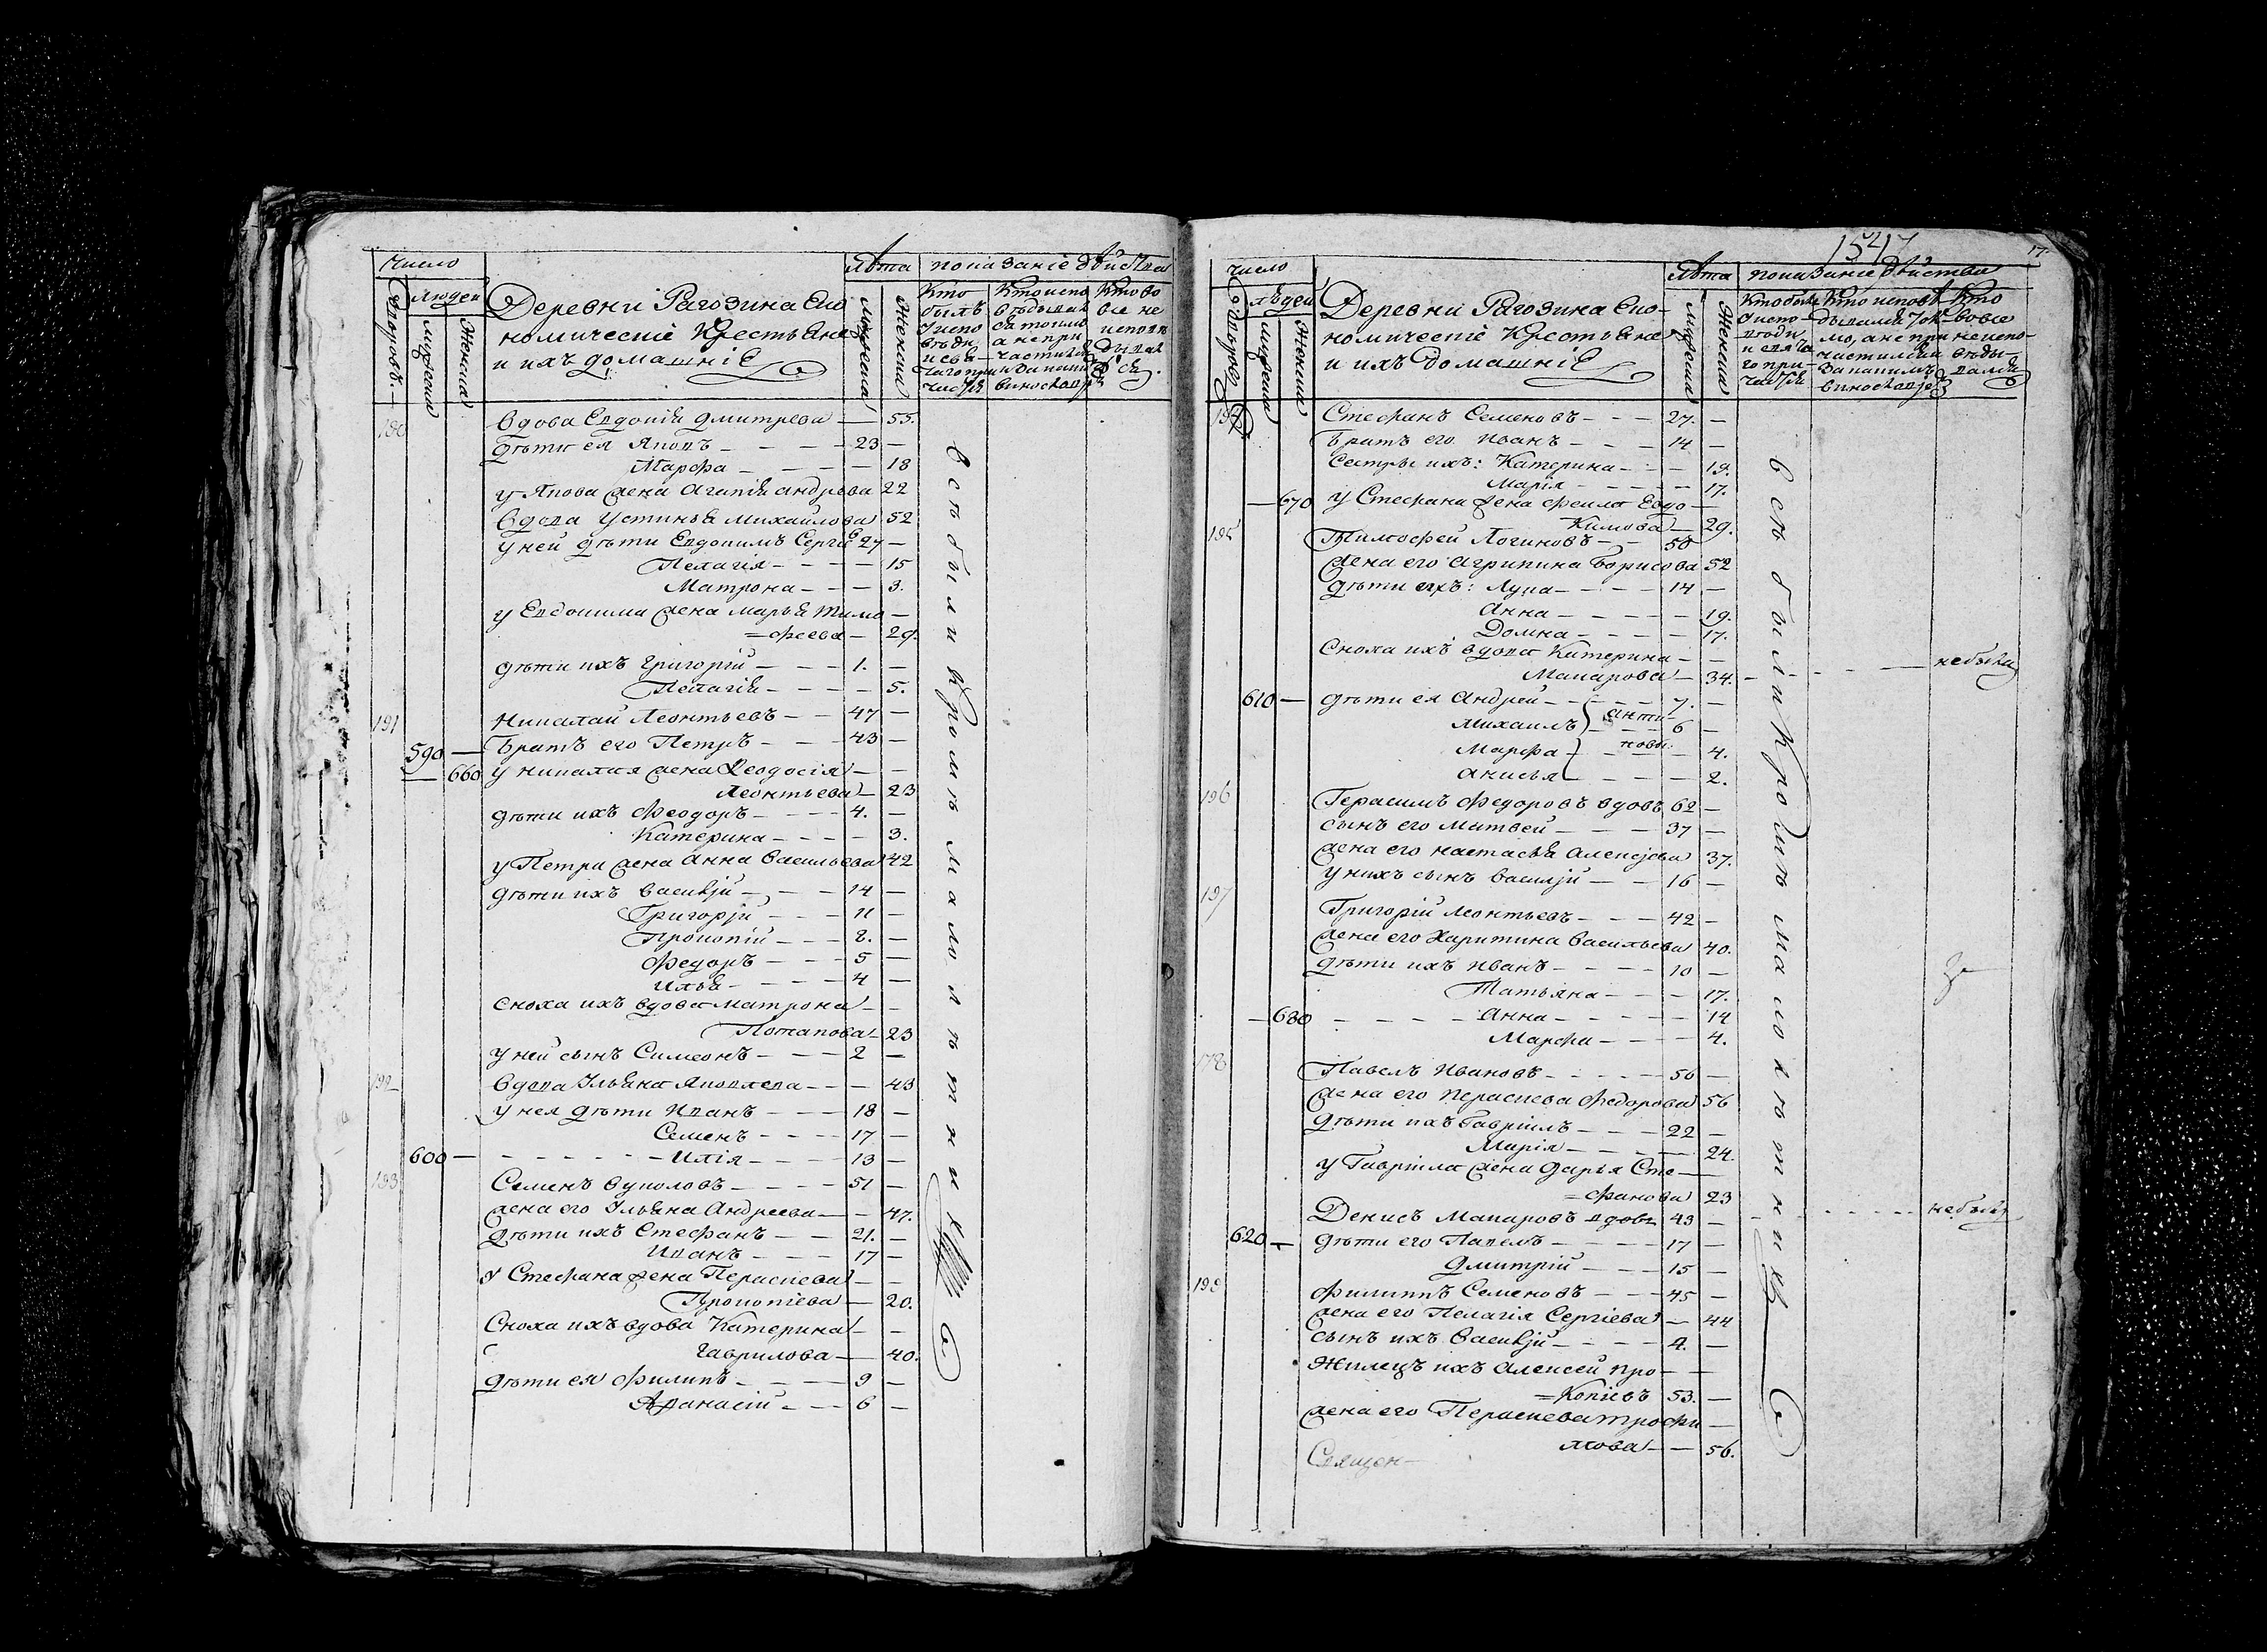 число
Лѣта
показаніе дѣйства
дворовъ
людей
мужеска
женска
Деревни Рагозина Еко
номическіе Крестьяне
и ихъ домашніе
мужеска
женска
Кто
былъ
у испо
вѣди
Кто испо
вѣдывал
ся токмо
а не при
частился
Кто во
все не
исповѣ
дывал
ся.
190
Вдова Евдокія Дмитрева — 55.
Дѣти ея Яковъ — 23 —
Марфа — 18
у Якова жена Агапія Андрева 22
Вдова Устинья Михайлова 52
у ней дѣти Евдокимъ Сергѣев 27 —
Пелагія — 15
Матрона — 3.
у Евдокима жена Марья Тимо —
=феева — 29.
дѣти ихъ Григорій — 1. —
Пелагія — 5.
191 Николай Леонтьевъ — 47 —
590 — Братъ его Петръ — 43 —
— 660 у Николая жена Феодосія — —
Леонтьева — 23
дѣти ихъ Феодоръ — 4. —
Катерина — 3.
у Петра жена Анна Васильева 42
дѣти ихъ Василій — 14 —
Григорій — 11 —
Прокопій — 8. —
Федоръ — 5 —
Илья — 4 —
Сноха ихъ вдова Матрона — —
Потапова — 23
у ней сынъ Симеонъ — 2 —
192 Вдова Ульяна Яковлева — 43
у нея дѣти Иванъ — 18 —
Семенъ — 17 —
600 — Илія — 13 —
193 Семенъ Вуколовъ — 51 —
жена его Ульяна Андреева — 47.
дѣти ихъ Стефанъ — 21. —
Иванъ — 17 —
У Стефана жена Параскева — —
Прокопіева — 20.
Сноха ихъ вдова Катерина — —
Гаврилова — 40.
дѣти ея Филипъ — 9 —
Афанасій — 6 —
всѣ были кромѣ малолѣтних
1547
17.
число
Лѣта
показаніе дѣйства
дворовъ
людей
мужеска
женска
Деревни Рагозина Еко-
номическіе Крестьяне
и ихъ домашніе
мужеска
женска
Кто былъ
у испо-
вѣди
Кто исповѣ
дывался ток-
мо, а не при
частился
Кто
вовсе
не испо-
вѣды-
вался
194 Стефанъ Семеновъ — 27. —
Братъ его Иванъ — 14 —
Сестры ихъ: Катерина — 19.
Марія — 17.
— 670 у Стефана жена Фекла Евдо —
Кимова — 29.
195 Тимофей Логиновъ — 50
жена его Агрипина Борисова 52
Дѣти ихъ: Лука — 14 —
Анна — 19.
Домна — 17.
Сноха ихъ вдова Катерина — —
Макарова — 34. — не была
610 — дѣти ея Андрей — 7. —
Михаилъ — 6 —
Марфа — 4.
Анисья — 2.
196 Герасимъ Федоровъ вдовъ 62 —
сынъ его Матвей — 37 —
жена его Настасья Алексеева 37.
у нихъ сынъ Василій — 16 —
197 Григорій Леонтьевъ — 42 —
жена его Харитина Васильева 40.
дѣти ихъ Иванъ — 10 —
Татьяна — 17.
— 680 — Анна — 14
Марфа — 4.
198 Павелъ Ивановъ — 50 —
жена его Параскева Федорова 56
дѣти ихъ Гавріилъ — 22 —
Марія — 24.
у Гавріила жена Дарья Сте —
=фанова 23
Денисъ Макаровъ вдовъ 43 — не былъ
620 — дѣти его Павелъ — 17 —
Дмитрій — 15 —
199 Филиппъ Семеновъ — 45 —
жена его Пелагія Сергіева — 44
сынъ ихъ Василій — 4. —
Жилецъ ихъ Алексей Про — —
=Копіевъ 53. —
жена его Параскева Трофи —
мова — 56.
всѣ были кромѣ малолѣтних
Священ-